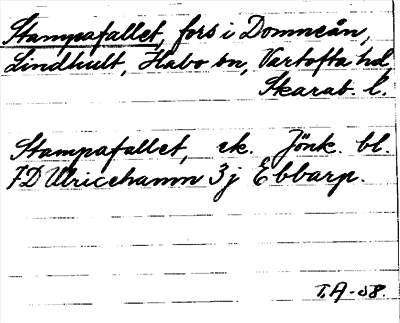 Stampafallet, fors i Domneån,
Lindhult, Habo sn, Vartofta hd,
Skarab. l.
Stampafallet, ek. Jönk. bl.
7D Ulricehamn 3j Ebbarp.
T.A-58.